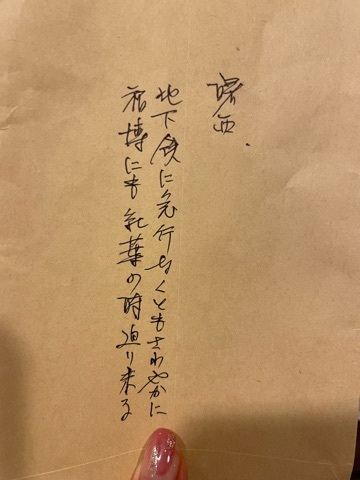 西
地下鉄に急行なくともさわやかに
福博にも紅葉の時迫り来る